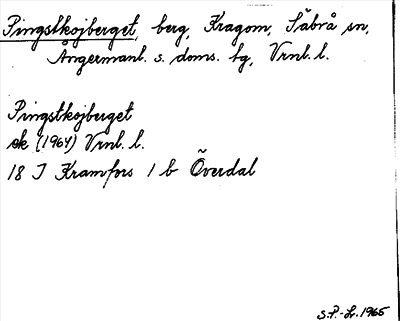 Pingstkojberget, berg, Kragom, Säbrå sn,
Ångermanl. s. doms. tg, Vrnl. l.
Pingstkojberget
ek (1964) Vrnl. l.
18 I Kramfors 1 b Överdal
S.P.-Lr. 1965